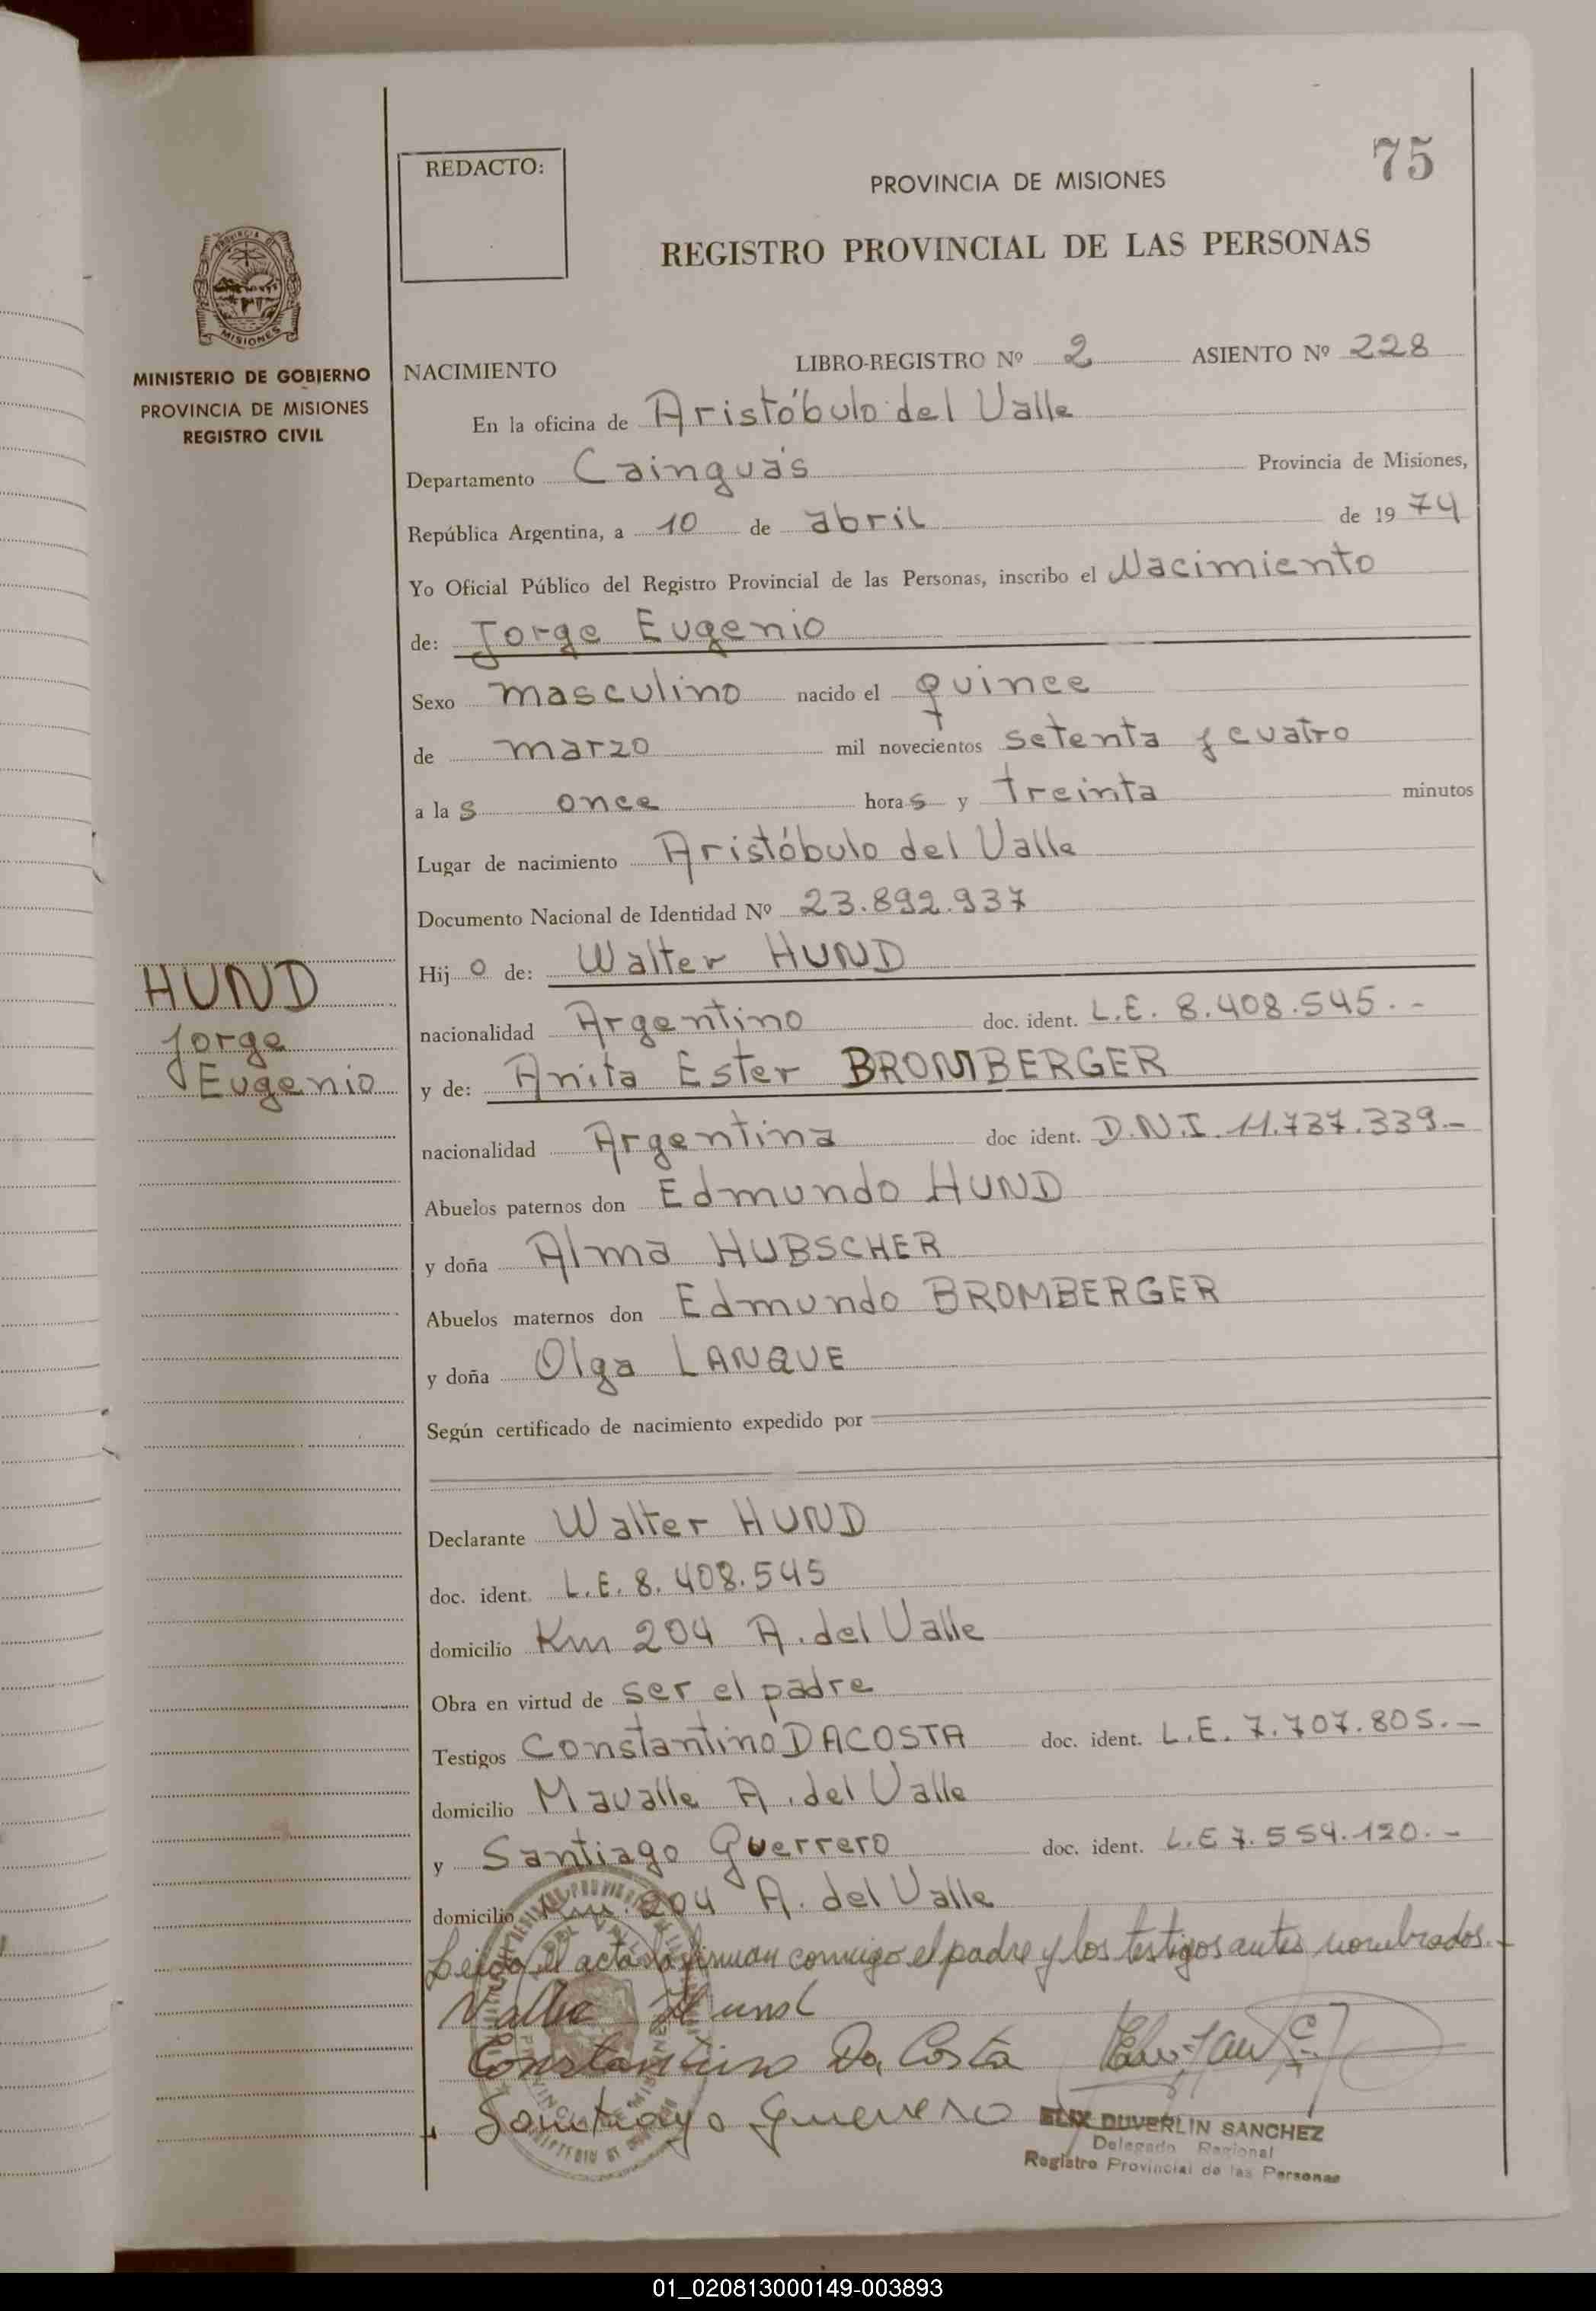 75
REDACTO:
PROVINCIA DE MISIONES
REGISTRO PROVINCIAL DE LAS PERSONAS
MISIONES
MINISTERIO DE GOBIERNO
PROVINCIA DE MISIONES
REGISTRO CIVIL
NACIMIENTO LIBRO-REGISTRO Nº 2 ASIENTO Nº 228
En la oficina de Aristóbulo del Valle
Departamento Cainguás Provincia de Misiones,
República Argentina, a 10 de abril de 1974
Yo Oficial Público del Registro Provincial de las Personas, inscribo el Nacimiento
de: Jorge Eugenio
Sexo masculino nacido el quince
de marzo mil novecientos setenta y cuatro
a las once horas y treinta minutos
Lugar de nacimiento Aristóbulo del Valle
Documento Nacional de Identidad Nº 23.892.937
HUND
Jorge
Eugenio
Hijo de: Walter HUND
nacionalidad Argentino doc. ident. L.E. 8.408.545.-
y de: Anita Ester BROMBERGER
nacionalidad Argentina doc ident. D.N.I. 11.737.339.-
Abuelos paternos don Edmundo HUND
y doña Alma HUBSCHER
Abuelos maternos don Edmundo BROMBERGER
y doña Olga LANQUE
Según certificado de nacimiento expedido por
Declarante Walter HUND
doc. ident. L.E. 8.408.545
domicilio Km 204 A. del Valle
Obra en virtud de ser el padre
Testigos Constantino DACOSTA doc. ident. L.E. 7.707.805.-
domicilio Mavalle A. del Valle
y Santiago Guerrero doc. ident. L.E 7.554.120.-
domicilio Km. 204 A. del Valle
Leida el acta la firman conmigo el padre y los testigos antes nombrados.-
Walter Hund
Constantino Da Costa
Santiago Guerrero
ELIX DUVERLIN SANCHEZ
Delegado Regional
Registro Provincial de las Personas
01_020813000149-003893